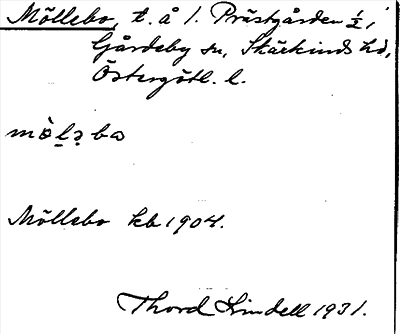 Möllebo, t. å 1. Prästgården ½,
Gårdeby sn, Skärkinds hd,
Östergötl. l.
mòl̠ə̠ bω
Möllebo kb 1904.
Thord Lindell 1931.